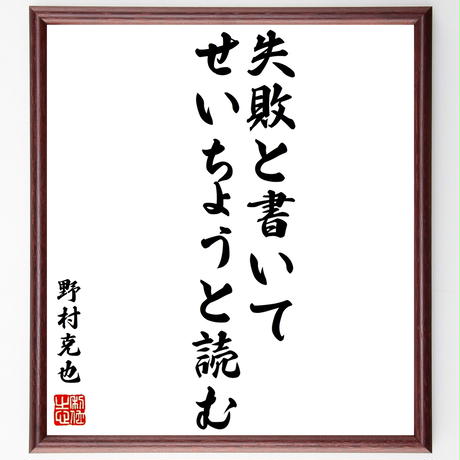 失敗と書いて
せいちょうと読む
野村克也